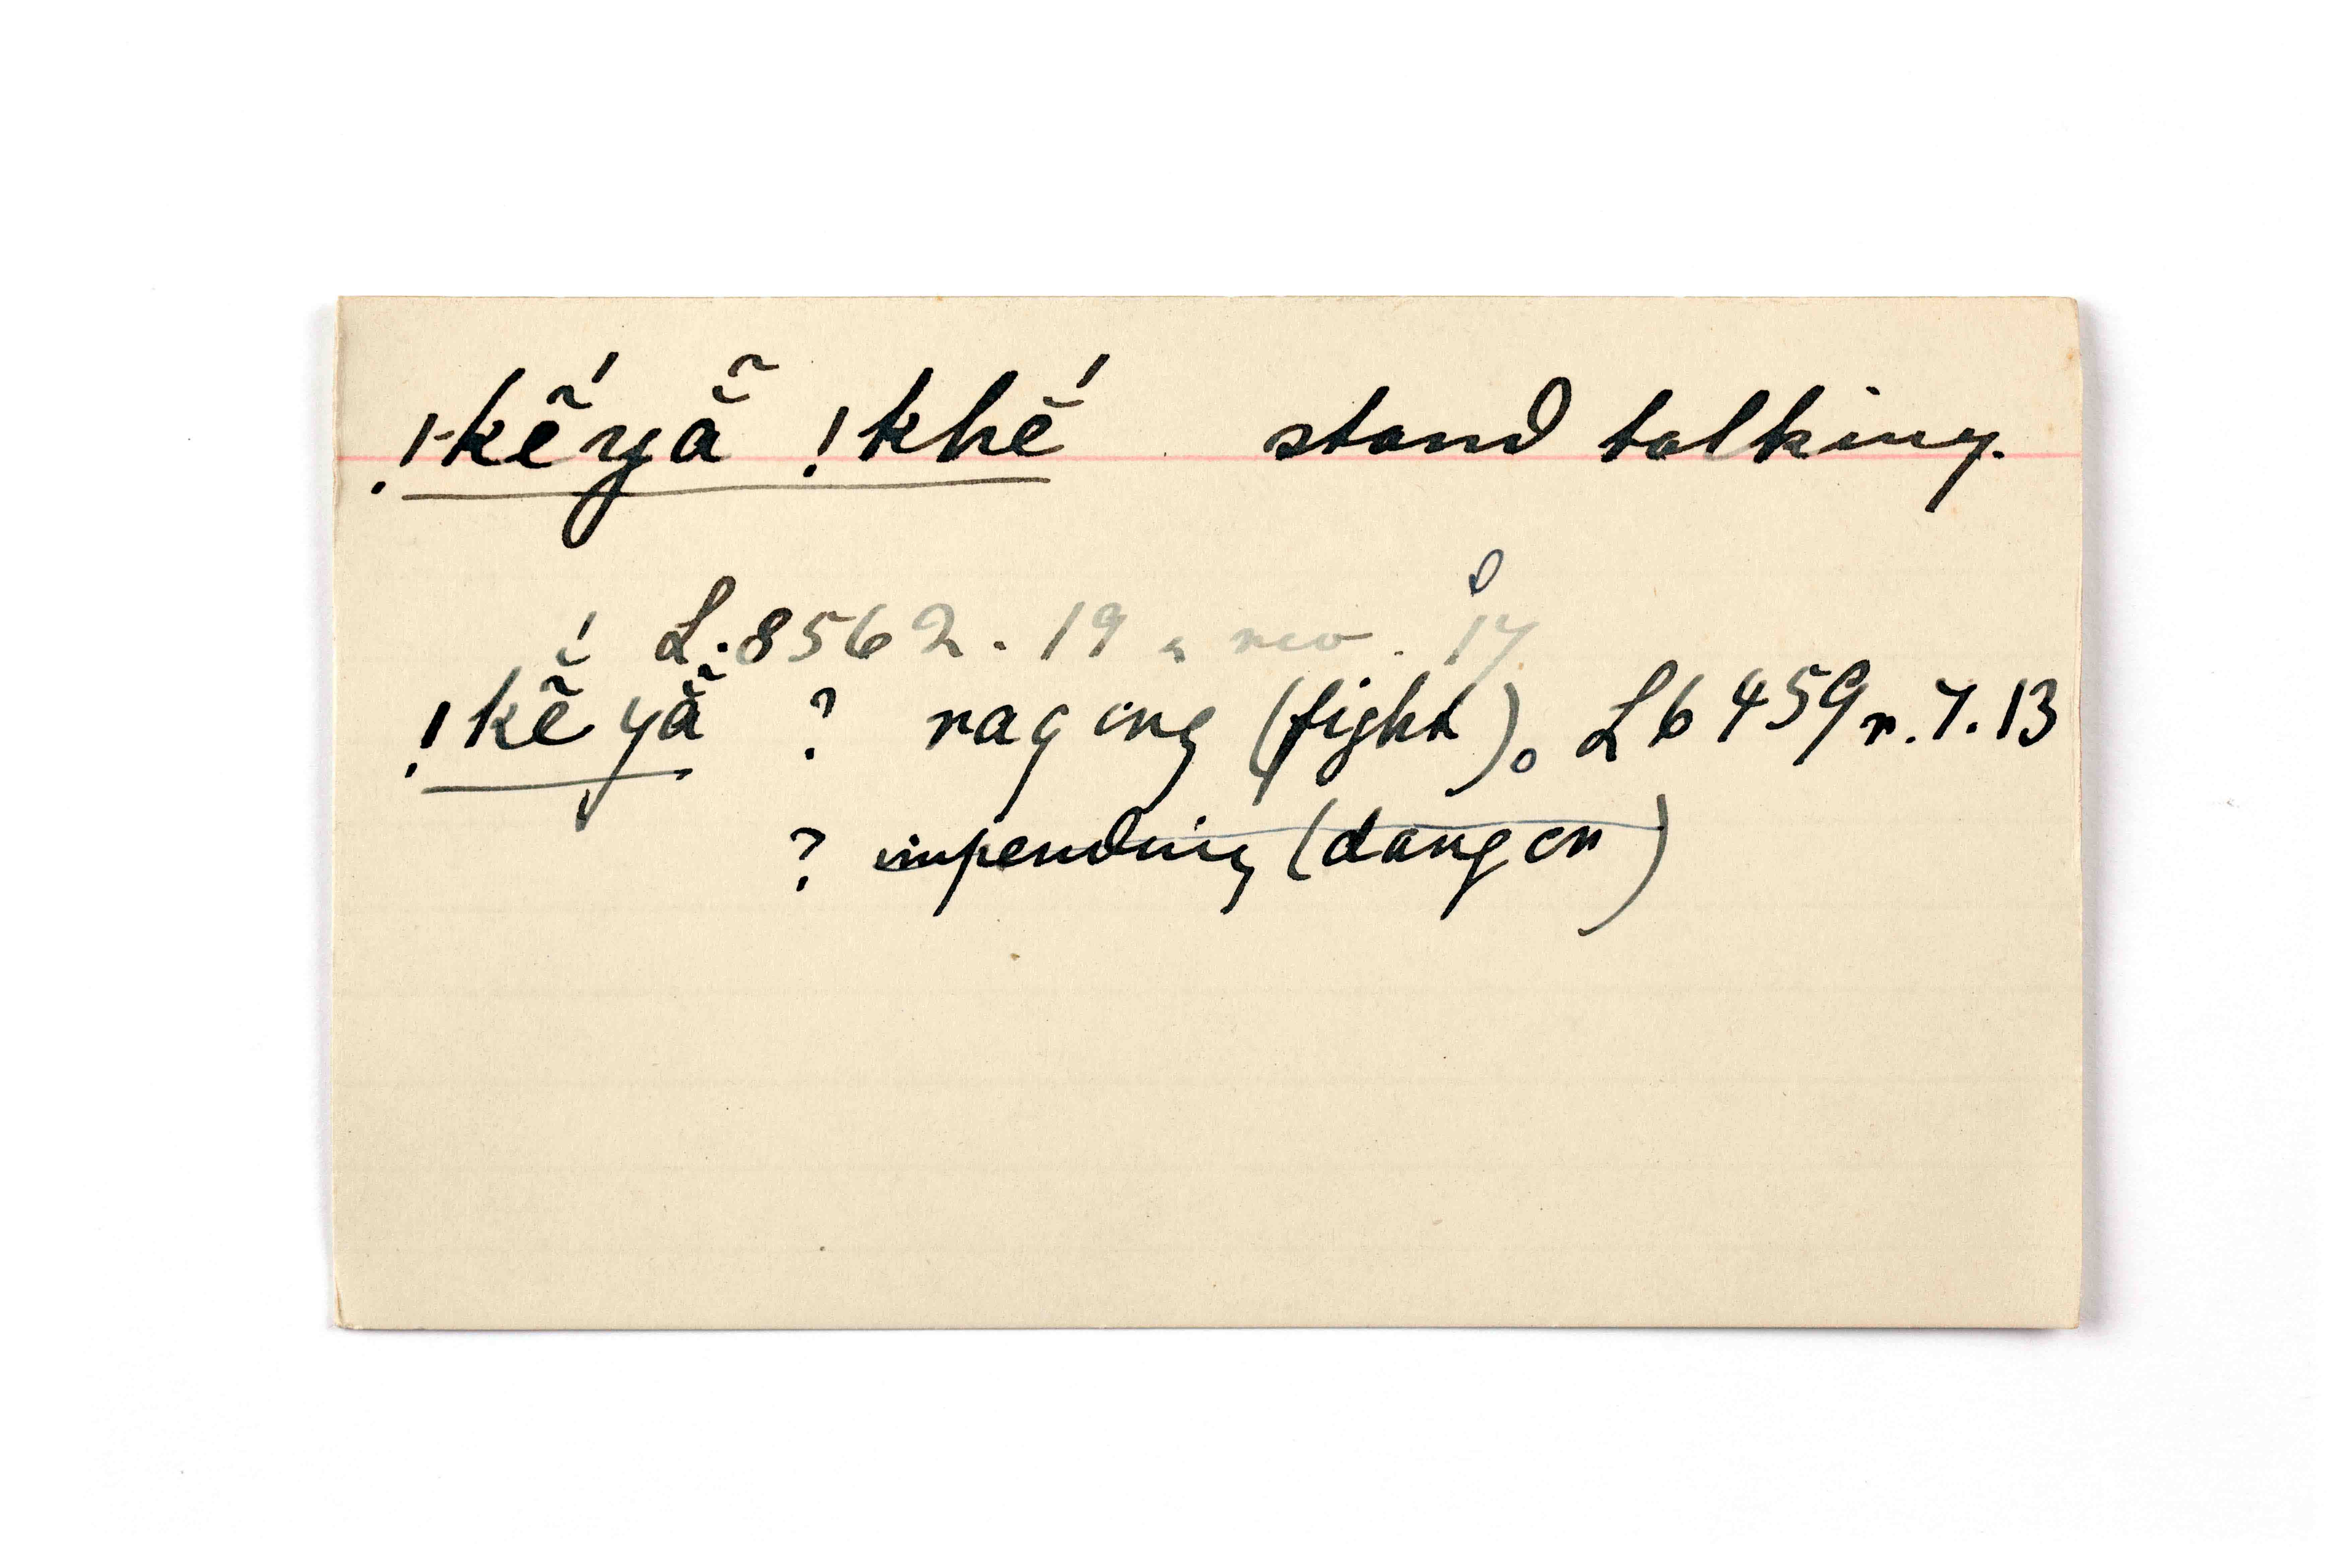 !kḗ̃yã̆ !khḗ̆ stand talking.
L.8562.19, rev. 17
!kḗ̃yã̆ ? raging (fight). L6459r.7.13
? impending (danger)